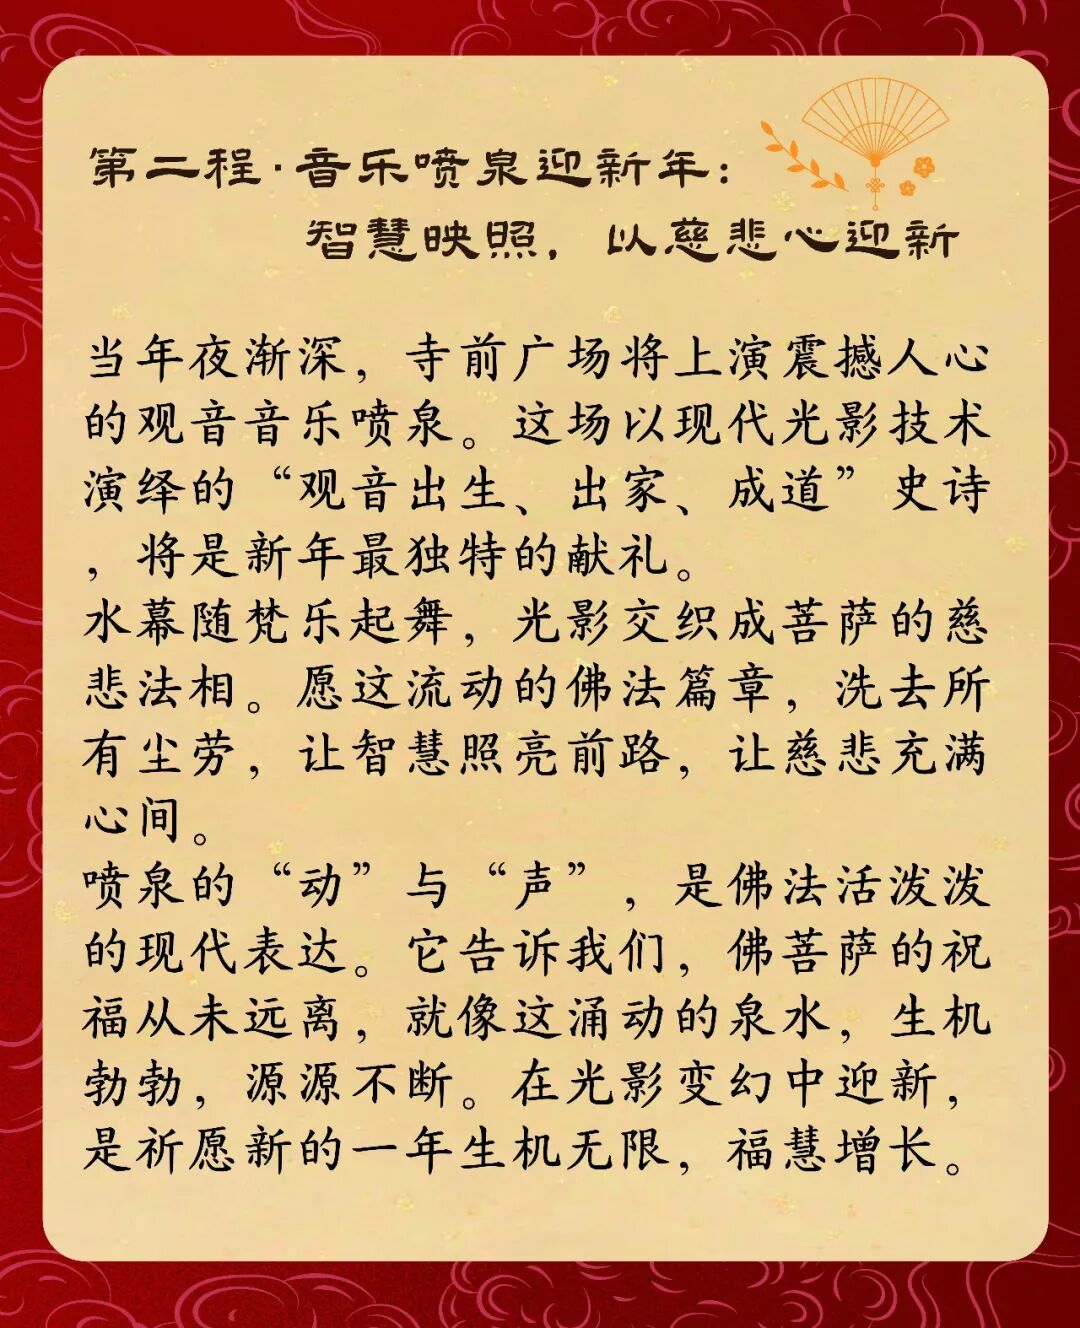 第二程·音乐喷泉迎新年：
智慧映照，以慈悲心迎新
当年夜渐深，寺前广场将上演震撼人心
的观音音乐喷泉。这场以现代光影技术
演绎的“观音出生、出家、成道”史诗
，将是新年最独特的献礼。
水幕随梵乐起舞，光影交织成菩萨的慈
悲法相。愿这流动的佛法篇章，洗去所
有尘劳，让智慧照亮前路，让慈悲充满
心间。
喷泉的“动”与“声”，是佛法活泼泼
的现代表达。它告诉我们，佛菩萨的祝
福从未远离，就像这涌动的泉水，生机
勃勃，源源不断。在光影变幻中迎新，
是祈愿新的一年生机无限，福慧增长。